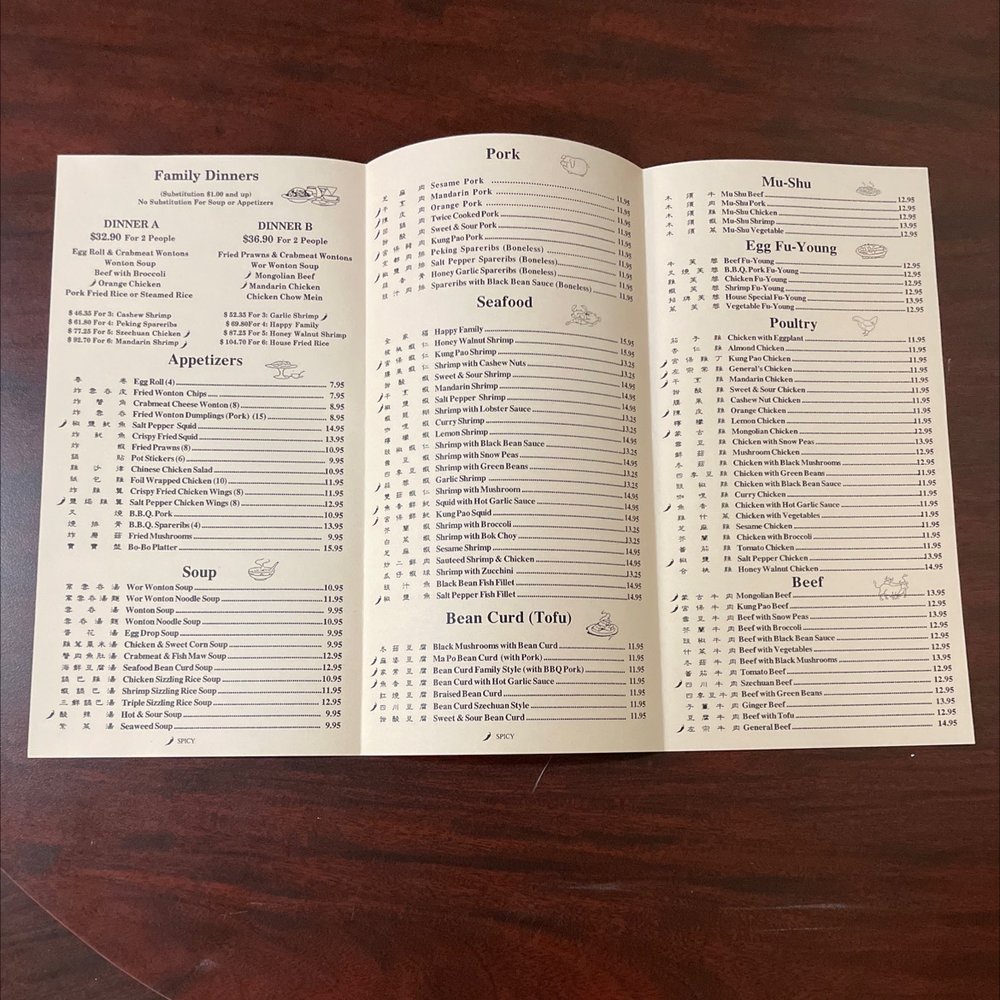 Family Dinners
(Substitution $1.00 and up)
No Substitution For Soup or Appetizers
DINNER A
$32.90 For 2 People
Egg Roll & Crabmeat Wontons
Wonton Soup
Beef with Broccoli
Orange Chicken
Pork Fried Rice or Steamed Rice
$ 46.35 For 3: Cashew Shrimp
$ 61.80 For 4: Peking Spareribs
$ 77.25 For 5: Szechuan Chicken
$ 92.70 For 6: Mandarin Shrimp
DINNER B
$36.90 For 2 People
Fried Prawns & Crabmeat Wontons
Wor Wonton Soup
Mongolian Beef
Mandarin Chicken
Chicken Chow Mein
$ 52.35 For 3: Garlic Shrimp
$ 69.80 For 4: Happy Family
$ 87.25 For 5: Honey Walnut Shrimp
$ 104.70 For 6: House Fried Rice
Appetizers
春卷 Egg Roll (4) 7.95
炸雲吞皮 Fried Wonton Chips 7.95
炸蟹角 Crabmeat Cheese Wonton (8) 8.95
炸雲吞 Fried Wonton Dumplings (Pork) (15) 8.95
椒鹽魷魚 Salt Pepper Squid 14.95
炸魷魚 Crispy Fried Squid 13.95
炸蝦 Fried Prawns (8) 10.95
鍋貼 Pot Stickers (6) 9.95
雞沙律 Chinese Chicken Salad 10.95
紙包雞 Foil Wrapped Chicken (10) 11.95
炸雞翼 Crispy Fried Chicken Wings (8) 11.95
鹽焗雞翼 Salt Pepper Chicken Wings (8) 12.95
叉燒 B.B.Q. Pork 10.95
燒排骨 B.B.Q. Spareribs (4) 13.95
炸蘑菇 Fried Mushrooms 9.95
寶寶盤 Bo-Bo Platter 15.95
Soup
窩雲吞湯 Wor Wonton Soup 10.95
窩雲吞湯麵 Wor Wonton Noodle Soup 11.95
雲吞湯 Wonton Soup 9.95
雲吞湯麵 Wonton Noodle Soup 10.95
蛋花湯 Egg Drop Soup 9.95
雞茸粟米湯 Chicken & Sweet Corn Soup 9.95
蟹肉魚肚湯 Crabmeat & Fish Maw Soup 12.95
海鮮豆腐湯 Seafood Bean Curd Soup 12.95
鍋巴雞湯 Chicken Sizzling Rice Soup 10.95
蝦鍋巴湯 Shrimp Sizzling Rice Soup 11.95
三鮮鍋巴湯 Triple Sizzling Rice Soup 12.95
酸辣湯 Hot & Sour Soup 9.95
紫菜湯 Seaweed Soup 9.95
SPICY
Pork
芝麻肉 Sesame Pork 11.95
干烹肉 Mandarin Pork 11.95
陳皮肉 Orange Pork 11.95
回鍋肉 Twice Cooked Pork 11.95
甜酸肉 Sweet & Sour Pork 11.95
宮保肉 Kung Pao Pork 11.95
京都排骨 Peking Spareribs (Boneless) 11.95
椒鹽肉排 Salt Pepper Spareribs (Boneless) 11.95
蒜香骨 Honey Garlic Spareribs (Boneless) 11.95
豉汁肉排 Spareribs with Black Bean Sauce (Boneless) 11.95
Seafood
全家福 Happy Family 15.95
核桃蝦仁 Honey Walnut Shrimp 15.95
宮保蝦仁 Kung Pao Shrimp 13.25
腰果蝦仁 Shrimp with Cashew Nuts 13.25
甜酸蝦 Sweet & Sour Shrimp 13.25
干烹蝦 Mandarin Shrimp 13.25
椒鹽蝦 Salt Pepper Shrimp 14.95
蝦龍糊 Shrimp with Lobster Sauce 13.25
咖喱蝦 Curry Shrimp 13.25
檸檬蝦 Lemon Shrimp 13.25
豉椒蝦 Shrimp with Black Bean Sauce 13.25
雪豆蝦 Shrimp with Snow Peas 13.25
四季豆蝦 Shrimp with Green Beans 13.25
蒜蓉蝦 Garlic Shrimp 13.25
雙菇蝦仁 Shrimp with Mushroom 13.25
魚香鮮魷 Squid with Hot Garlic Sauce 14.95
宮保鮮魷 Kung Pao Squid 14.95
芥蘭蝦 Shrimp with Broccoli 13.25
白菜蝦 Shrimp with Bok Choy 13.25
芝麻蝦 Sesame Shrimp 14.95
炒二鮮 Sauteed Shrimp & Chicken 14.95
瓜仔蝦球 Shrimp with Zucchini 13.25
豉汁魚 Black Bean Fish Fillet 14.95
椒鹽魚 Salt Pepper Fish Fillet 14.95
Bean Curd (Tofu)
冬菇豆腐 Black Mushrooms with Bean Curd 11.95
麻婆豆腐 Ma Po Bean Curd (with Pork) 11.95
家常豆腐 Bean Curd Family Style (with BBQ Pork) 11.95
魚香豆腐 Bean Curd with Hot Garlic Sauce 11.95
紅燒豆腐 Braised Bean Curd 11.95
四川豆腐 Bean Curd Szechuan Style 11.95
甜酸豆腐 Sweet & Sour Bean Curd 11.95
SPICY
Mu-Shu
木須牛 Mu Shu Beef 12.95
木須肉 Mu-Shu Pork 12.95
木須雞 Mu-Shu Chicken 12.95
木須蝦 Mu-Shu Shrimp 12.95
木須菜 Mu-Shu Vegetable 12.95
Egg Fu-Young
牛芙蓉 Beef Fu-Young 12.95
叉燒芙蓉 B.B.Q. Pork Fu-Young 12.95
雞芙蓉 Chicken Fu-Young 12.95
蝦芙蓉 Shrimp Fu-Young 12.95
招牌芙蓉 House Special Fu-Young 13.95
菜芙蓉 Vegetable Fu-Young 12.95
Poultry
茄子雞 Chicken with Eggplant 11.95
杏仁雞 Almond Chicken 11.95
宮保雞丁 Kung Pao Chicken 11.95
左宗棠雞 General's Chicken 11.95
干烹雞 Mandarin Chicken 11.95
甜酸雞 Sweet & Sour Chicken 11.95
腰果雞 Cashew Nut Chicken 11.95
陳皮雞 Orange Chicken 11.95
檸檬雞 Lemon Chicken 11.95
蒙古雞 Mongolian Chicken 12.95
雪豆雞 Chicken with Snow Peas 13.95
鮮菇雞 Mushroom Chicken 12.95
冬菇雞 Chicken with Black Mushrooms 12.95
四季豆雞 Chicken with Green Beans 11.95
豉椒雞 Chicken with Black Bean Sauce 11.95
咖喱雞 Curry Chicken 11.95
魚香雞 Chicken with Hot Garlic Sauce 11.95
什菜雞 Chicken with Vegetables 11.95
芝麻雞 Sesame Chicken 11.95
芥蘭雞 Chicken with Broccoli 11.95
蕃茄雞 Tomato Chicken 11.95
椒鹽雞 Salt Pepper Chicken 13.95
合桃雞 Honey Walnut Chicken 14.95
Beef
蒙古牛肉 Mongolian Beef 13.95
宮保牛肉 Kung Pao Beef 12.95
雪豆牛肉 Beef with Snow Peas 13.95
芥蘭牛肉 Beef with Broccoli 12.95
豉椒牛肉 Beef with Black Bean Sauce 12.95
什菜牛肉 Beef with Vegetables 12.95
冬菇牛肉 Beef with Black Mushrooms 13.95
蕃茄牛肉 Tomato Beef 12.95
四川牛肉 Szechuan Beef 12.95
四季豆牛肉 Beef with Green Beans 12.95
子薑牛肉 Ginger Beef 13.95
豆腐牛肉 Beef with Tofu 12.95
左宗牛肉 General Beef 14.95